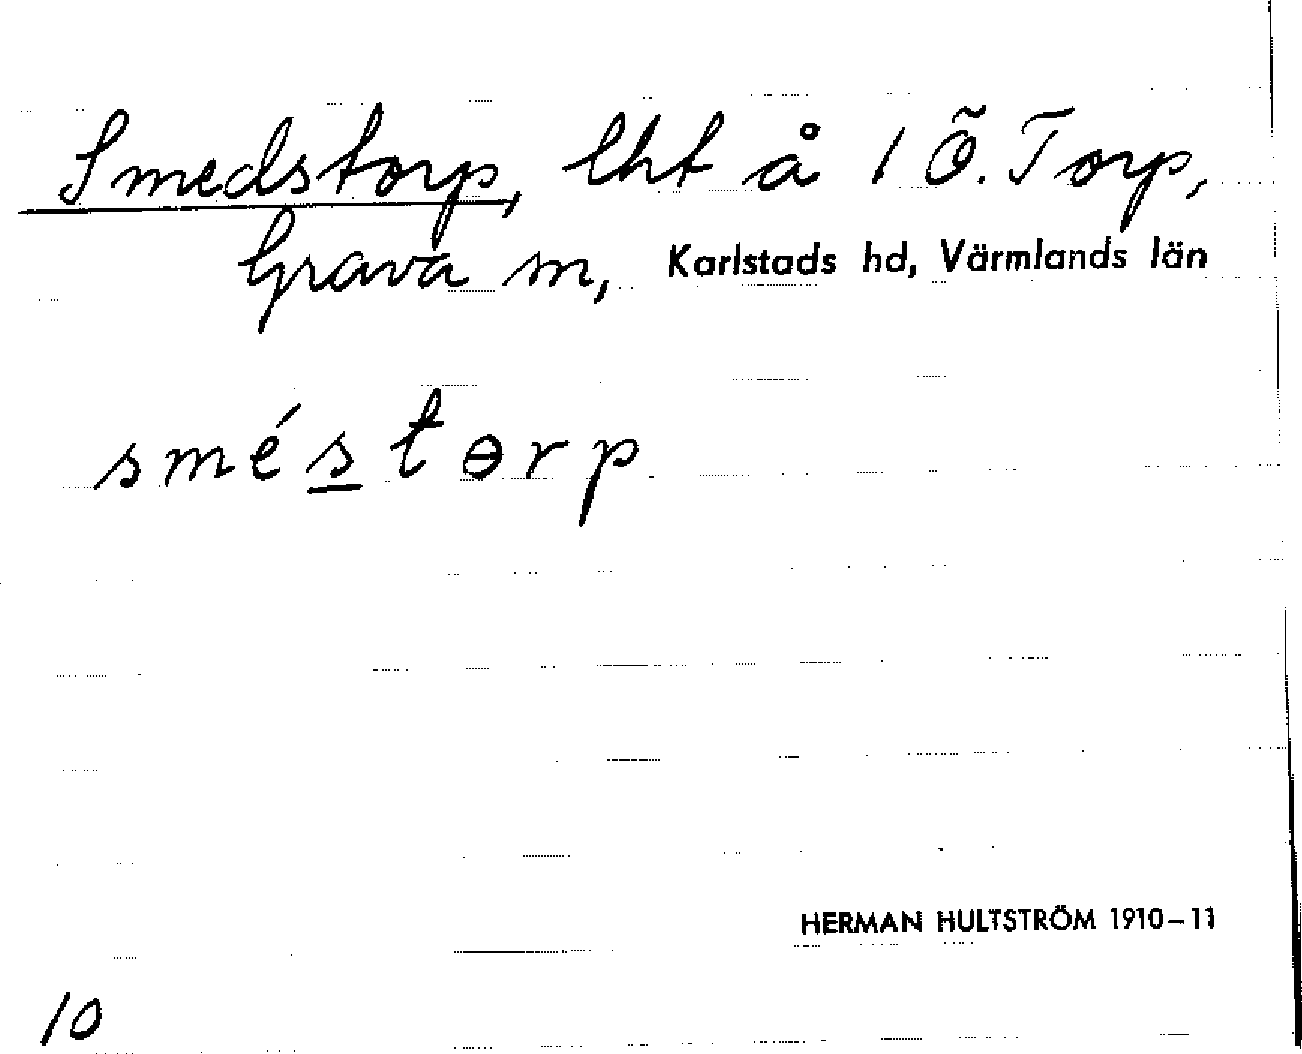 Smedstorp, lht å 1 Ö. Torp,
Grava sn, Karlstads hd, Värmlands län
smés̲tɵrp
HERMAN HULTSTRÖM 1910–11
10